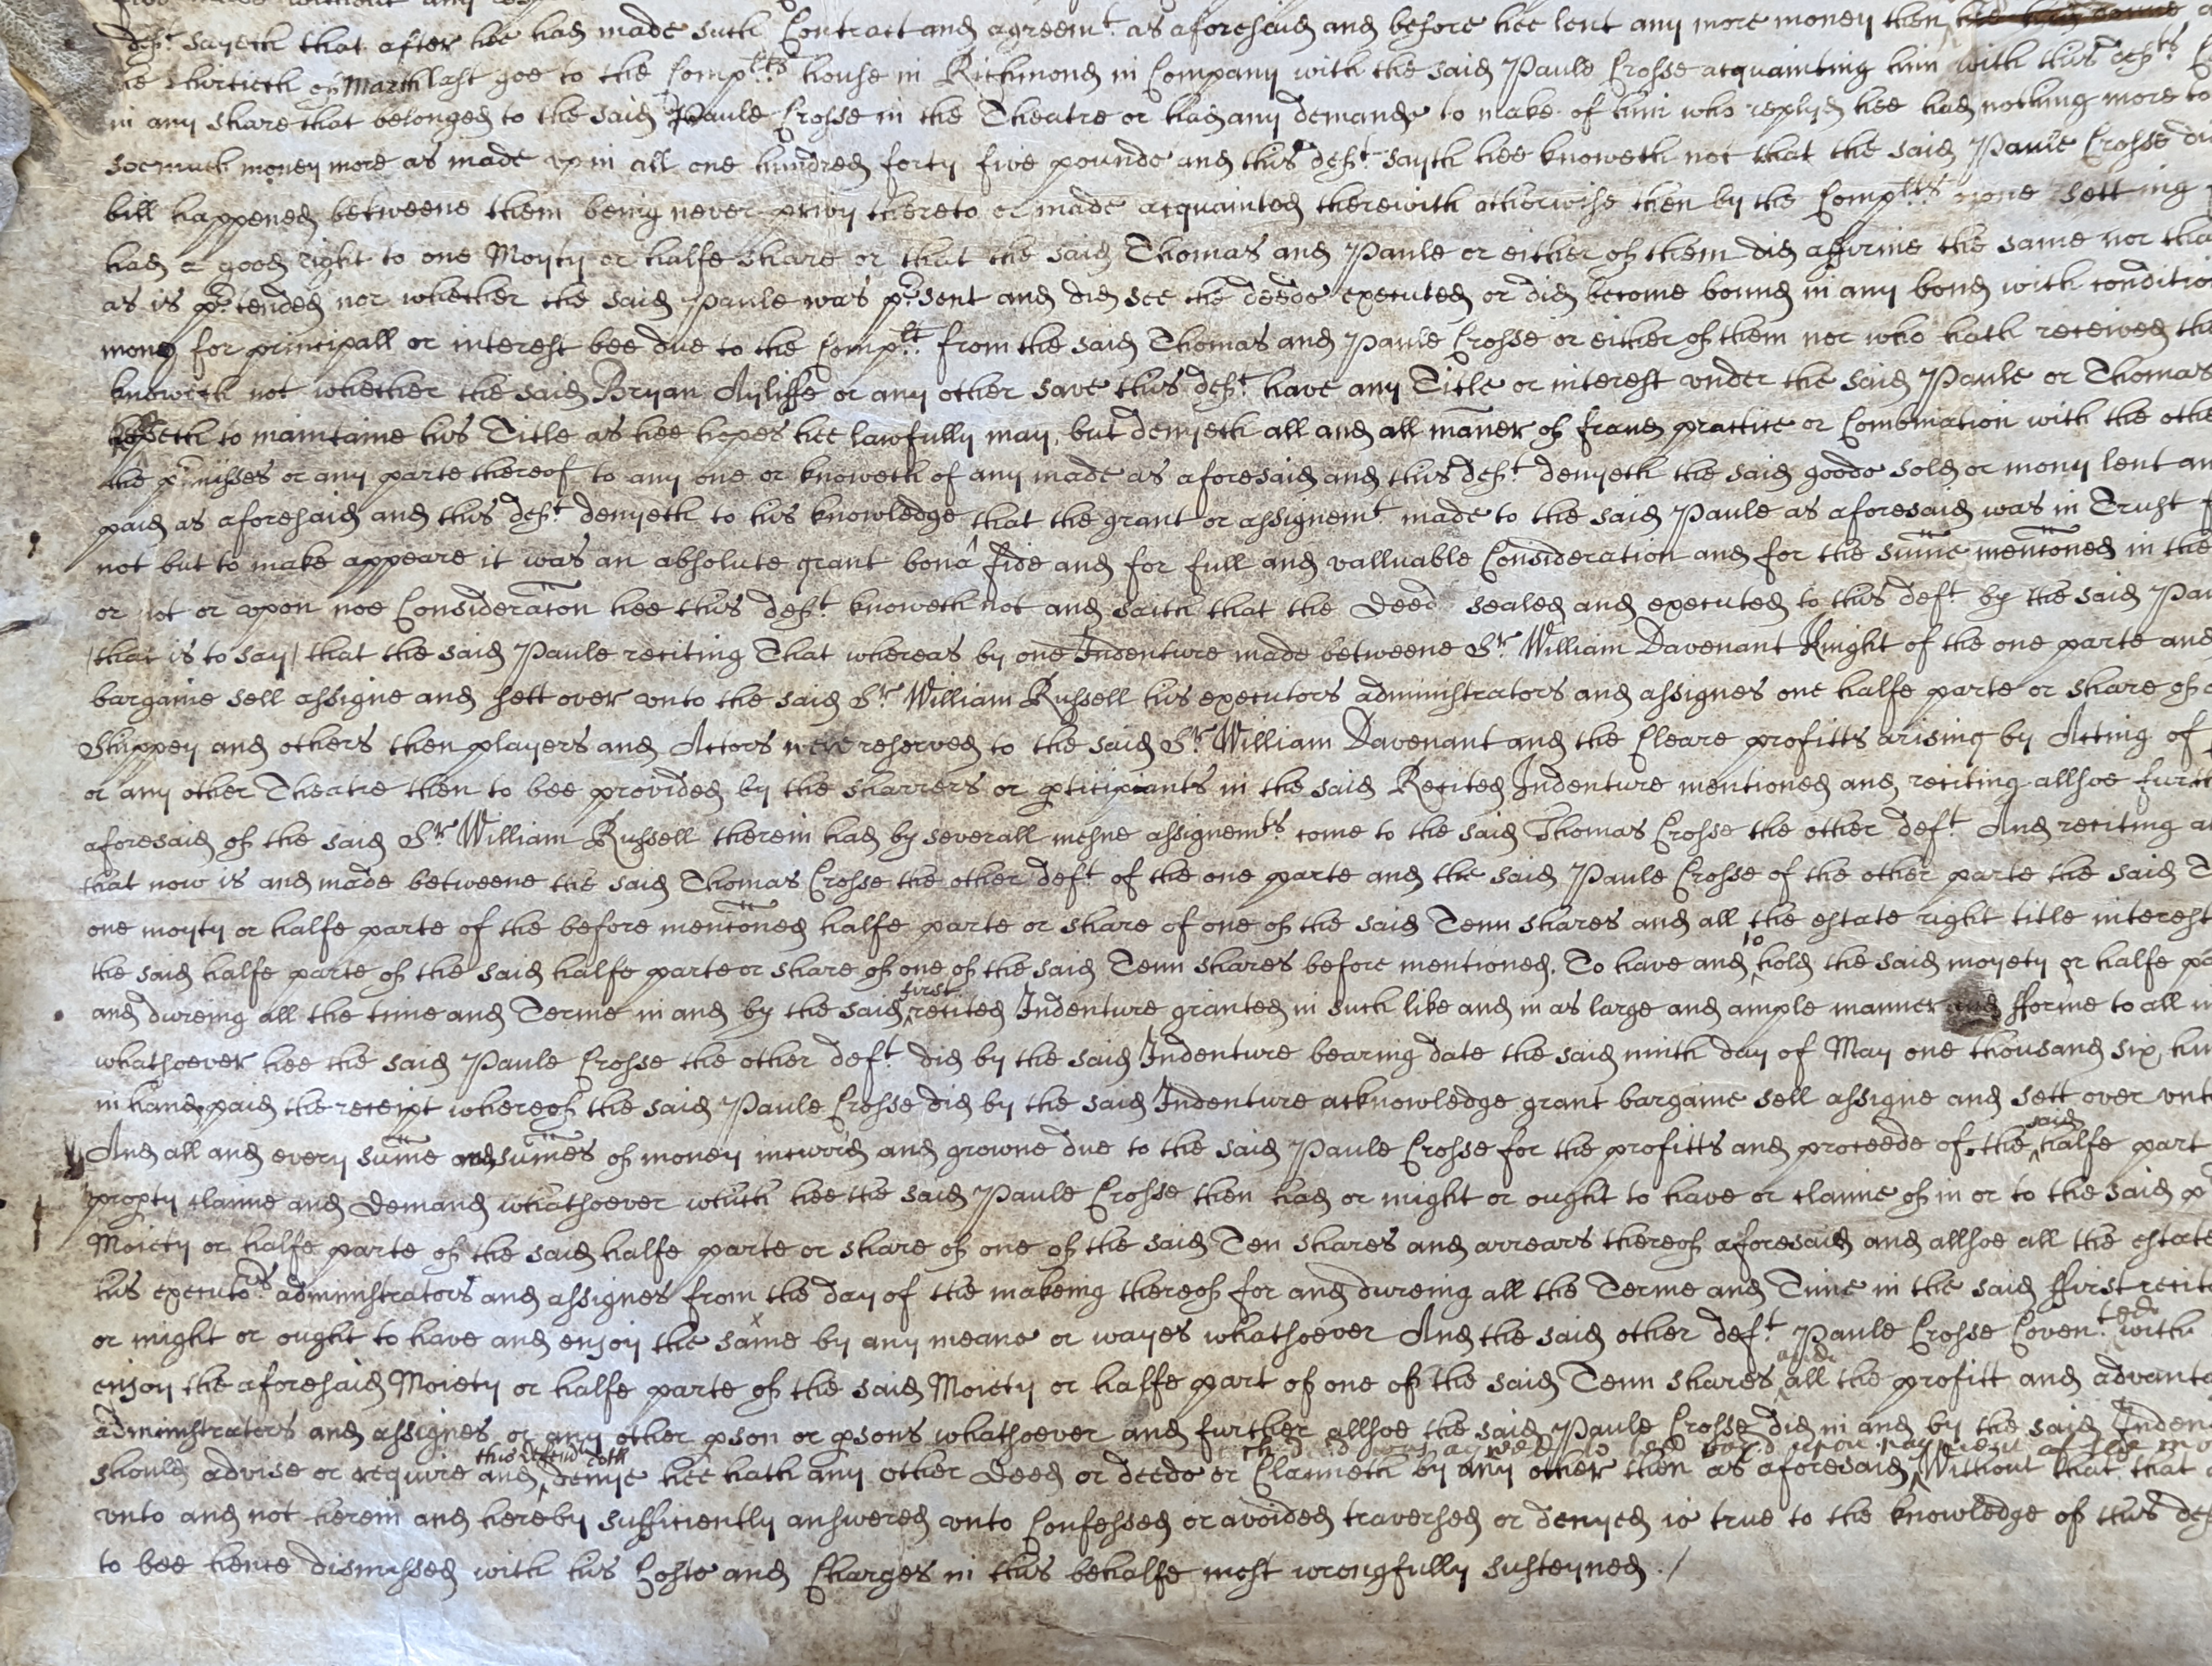 def.t sayeth that after hee had made such Contract and agreem.t as aforesaid and before hee lent any more money then
the thirtieth of March last goe to the Comp.lts house in Richmond in Company with the said Paule Crosse acquainting him with this def.ts
in any share that belonged to the said Paule Crosse in the Theatre or had any demande to make of him who replyed hee had nothing more to
soe much money more as made vp in all one hundred forty five pounde and this def.t sayth hee knoweth not that the said Paule Crosse
bill happened betweene them being never privy thereto or made acquainted therewith otherwise then by the Comp.lts owne setting
had a good right to one Moyty or halfe share or that the said Thomas and Paule or either of them did affirme the same nor tha
as is p.rtended nor whether the said Paule was p.rsent and did see the deede executed or did become bound in any bond with conditio
mony for principall or interest bee due to the Comp.lt from the said Thomas and Paule Crosse or either of them nor who hath received the
knoweth not whether the said Bryan Ayliffe or any other save this def.t have any Title or interest vnder the said Paule or Thomas
to maintaine his Title as hee hopes hee lawfully may, but denyeth all and all mañer of fraud practice or Combination with the othe
the p.rmisses or any parte thereof to any one or knoweth of any made as aforesaid and this def.t denyeth the said goode sold or mony lent an
paid as aforesaid and this def.t denyeth to his knowledge that the grant or assignem.t made to the said Paule as aforesaid was in Trust
not but to make appeare it was an absolute grant bonâ fide and for full and valluable Consideration and for the sum̃e menc̃oned in the
or not or vpon noe Considerac̃on hee this def.t knoweth not and saith that the Deed sealed and executed to this def.t by the said Pau
/that is to say/ that the said Paule reciting That whereas by one Indenture made betweene S.r William Davenant Knight of the one parte and
bargaine sell assigne and sett over vnto the said S.r William Russell his executors administrators and assignes one halfe parte or share of
Shippey and others then players and Actors were reserved to the said S.r William Davenant and the Cleare profitts arising by Acting of
or any other Theatre then to bee provided by the sharrers or pticipiants in the said Recited Indenture mentioned and reciting allsoe furth
aforesaid of the said S.r William Russell therein had by severall mesne assignem.ts come to the said Thomas Crosse the other def.t And reciting
that now is and made betweene the said Thomas Crosse the other def.t of the one parte and the said Paule Crosse of the other parte the said T
one moyty or halfe parte of the before menc̃oned halfe parte or share of one of the said Tenn shares and all the estate right title interest
the said halfe parte of the said halfe parte or share of one of the said Tenn shares before mentioned. To have and to hold the said moyety or halfe pa
and dureing all the time and Terme in and by the said first recited Indenture granted in such like and in as large and ample manner and fforme to all
whatsoever hee the said Paule Crosse the other def.t did by the said Indenture bearing date the said ninth day of May one thousand six hu
in hand paid the receipt whereof the said Paule Crosse did by the said Indenture acknowledge grant bargaine sell assigne and sett over vnto
And all and every sum̃e and sum̃es of money incurr'd and growne due to the said Paule Crosse for the profitts and proceede of the said halfe part
propty claime and Demand whatsoever which hee the said Paule Crosse then had or might or ought to have or claime of in or to the said p
Moiety or halfe parte of the said halfe parte or share of one of the said Ten shares and arrears thereof aforesaid and allsoe all the estate
his executo.rs administrators and assignes from the day of the makeing thereof for and dureing all the Terme and Time in the said ffirst recite
or might or ought to have and enjoy the same by any meanes or wayes whatsoever And the said other def.t Paule Crosse Coven.ted with
enjoy the aforesaid Moiety or halfe parte of the said Moiety or halfe part of one of the said Tenn shares and all the profitt and advanta
administrators and assignes or any other pson or psons whatsoever and further allsoe the said Paule Crosse did in and by the said Inden
should advise or require and this defend.t doth denye hee hath any other Deed or deede or Claimeth by any other then as aforesaid Without that that
vnto and not herein and hereby sufficiently answered vnto Confessed or avoided traversed or denyed is true to the knowledge of this def
to bee hence dismissed with his Coste and Charges in this behalfe most wrongfully susteyned ./